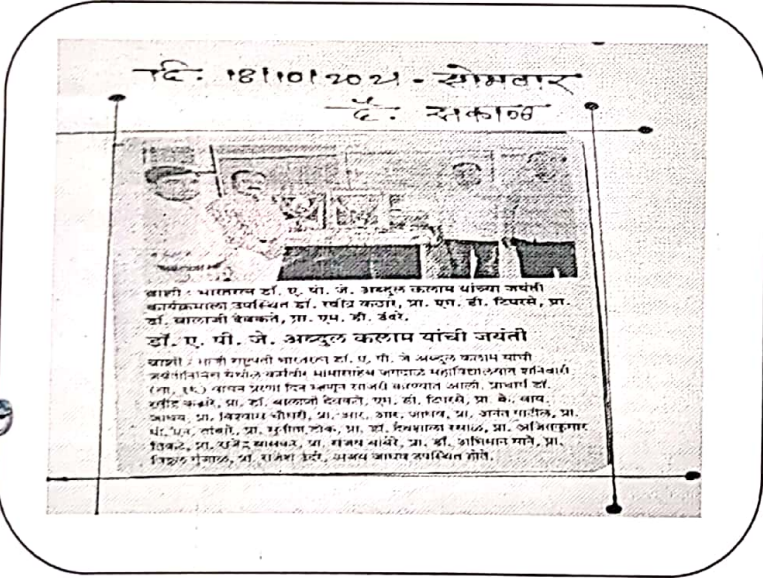 दि: 18/10/2021 - सोमवार
दै: सकाळ
बार्शी : भारतरत्न डॉ. ए. पी. जे. अब्दुल कलाम यांच्या जयंती
कार्यक्रमाला उपस्थित डॉ. रवींद्र कठारे, प्रा. एम. डी. टिपरसे, प्रा.
डॉ. बालाजी देवकते, प्रा. एम. डी. उंबरे.
डॉ. ए. पी. जे. अब्दुल कलाम यांची जयंती
बार्शी : माजी राष्ट्रपती भारतरत्न डॉ. ए. पी. जे अब्दुल कलाम यांची
जयंतीनिमित्त येथील कर्मवीर मामासाहेब जगदाळे महाविद्यालयात शनिवारी
(ता. १६) वाचन प्रेरणा दिन म्हणून साजरी करण्यात आली. प्राचार्य डॉ.
रवींद्र कठारे, प्रा. डॉ. बालाजी देवकते, एम. डी. टिपरसे, प्रा. के. वाय.
जाधव, प्रा. विश्वास चौधरी, प्रा. आर. आर. जाधव, प्रा. अनंत पाटील, प्रा.
पी. एन. तांबारे, प्रा. सुनीता टोक, प्रा. डॉ. देवशाला रसाळ, प्रा. अजितकुमार
प्रा. राजेंद्र प्रा. संजय प्रा. डॉ. अभिमान माने, प्रा.
विठ्ठल गुंजाळ, प्रा. राजेश उंबरे, अजय जाधव उपस्थित होते.